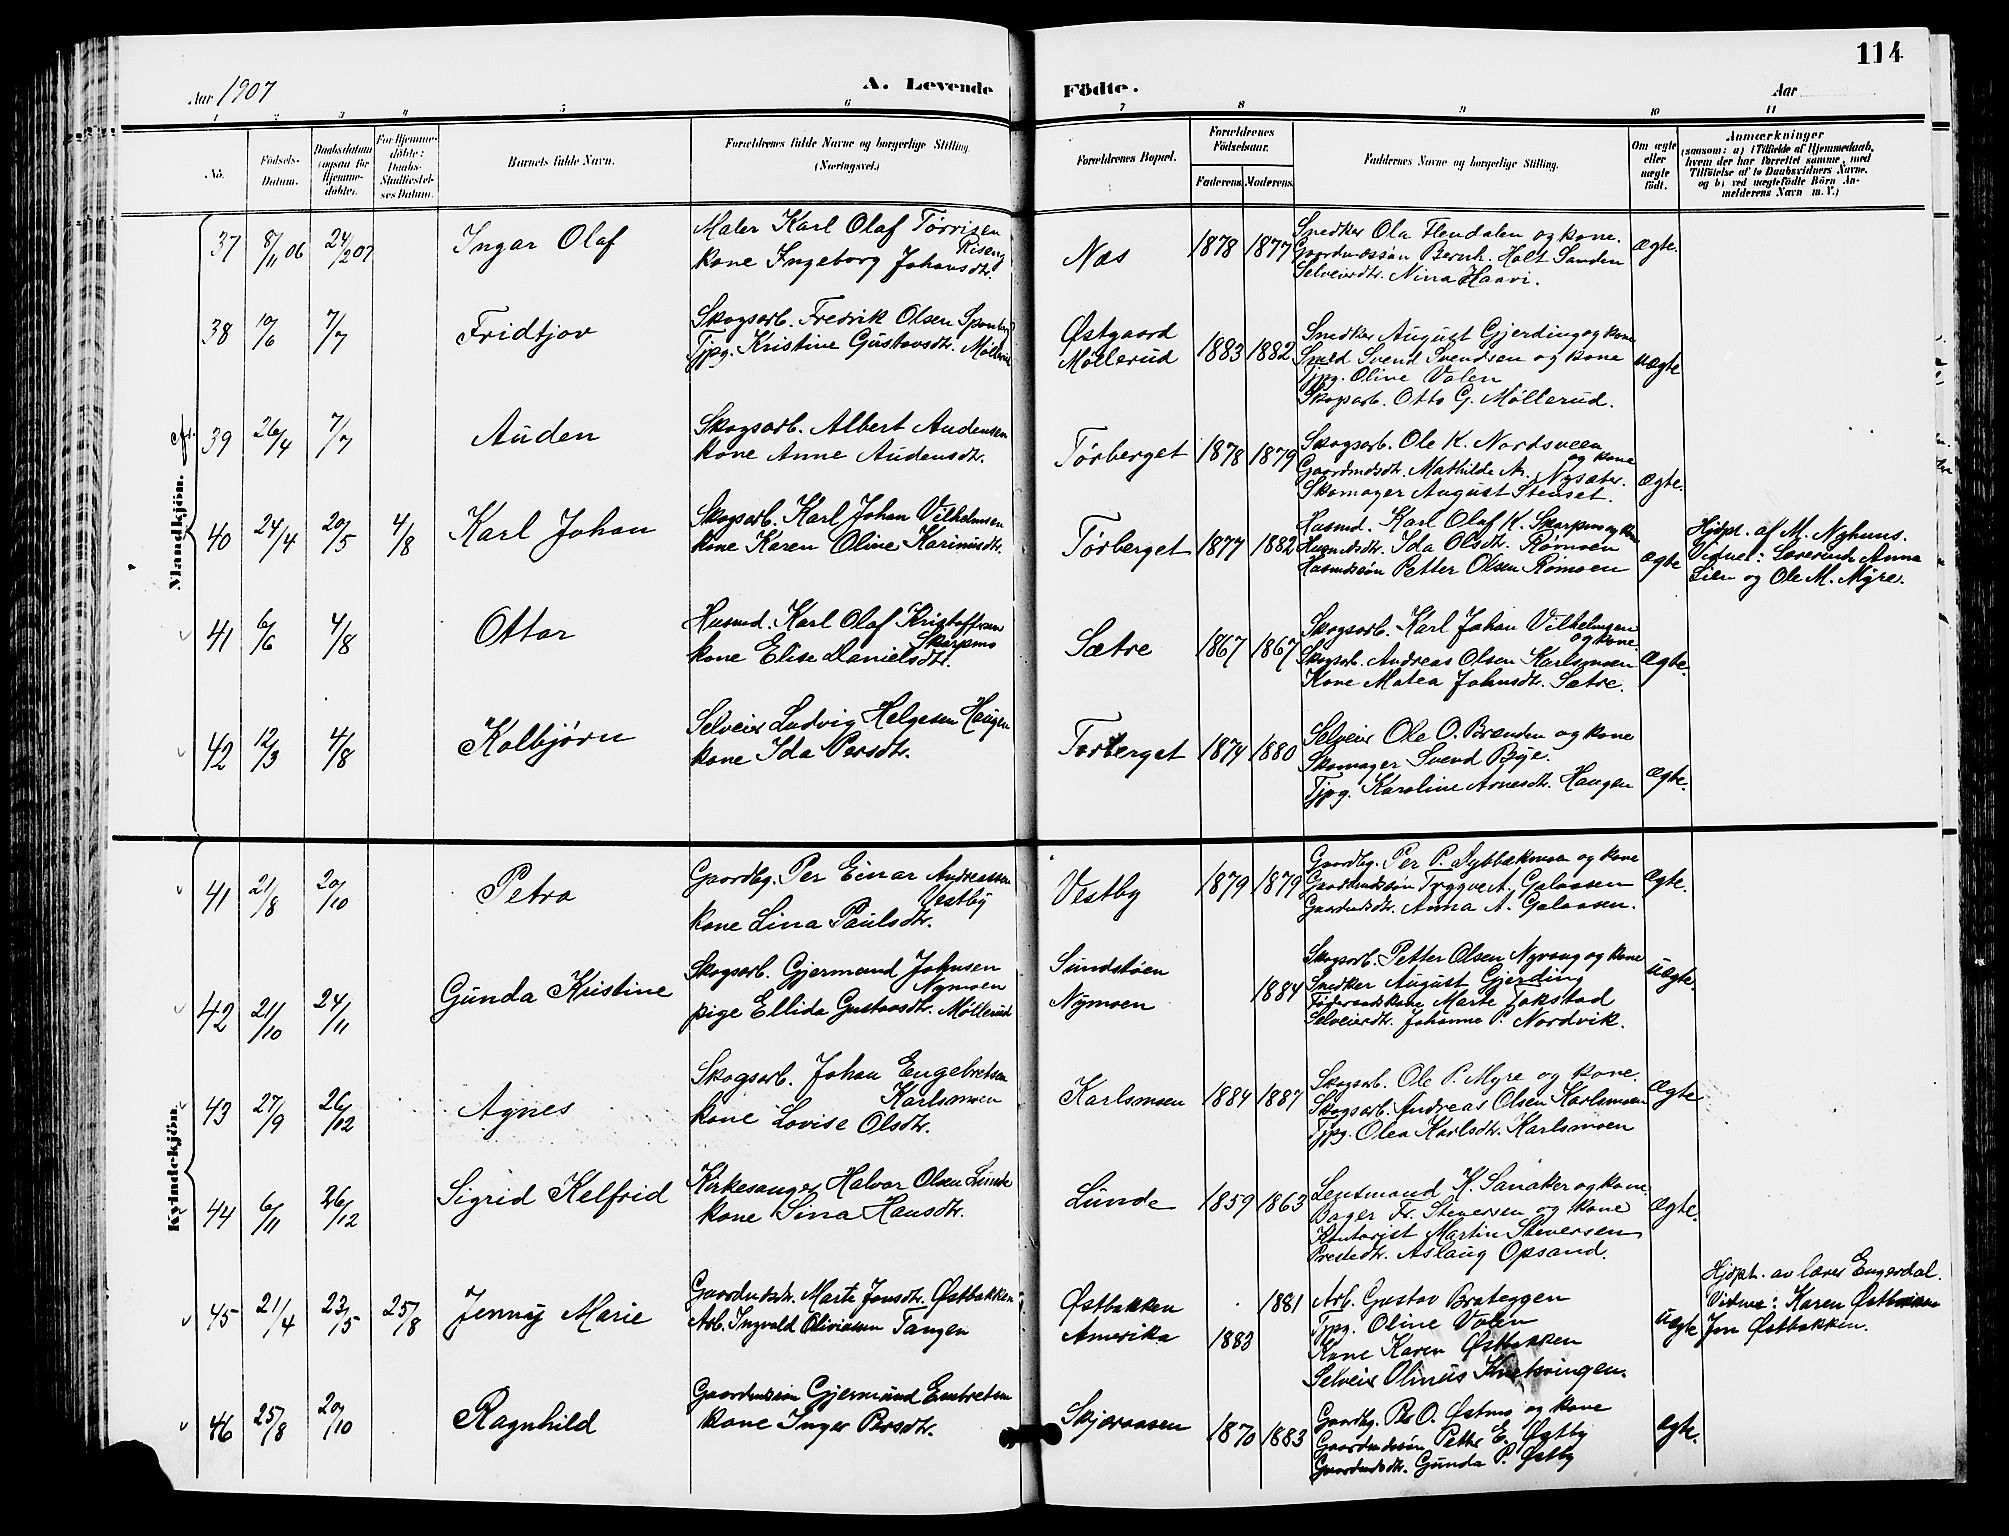 114
Aar 1907
A. Levende Födte.
Aar
1 2 3 4 5 6 7 8 9 10 11
No.
Födsels-Datum.
Daabsdatum (ogsaa for Hjemmedöbte).
For Hjemmedöbte: Daabs Stadfæstelses Datum.
Barnets fulde Navn.
Forældrenes fulde Navne og borgerlige Stilling (Næringsvei.)
Forældrenes Bopæl.
Forældrenes Födselsaar.
Faderens. Moderens.
Faddernes Navne og borgerlige Stilling.
Om ægte eller uægte födt.
Anmærkninger
(saasom: a) i Tilfælde af Hjemmedaab,
hvem der har forrettet samme, med
Tilföielse af to Daabsvidners Navne,
og b) ved uægtefödte Börn An-
melderens Navn m. V.)
Mandkjön.
37 8/11 06 24/2 07 Ingar Olaf
Maler Karl Olaf Tørrisen
Riseng
kone Ingeborg Johansdtr.
Næs 1878 1877
Snedker Ola Flendalen og kone.
Gaardmdssøn Bernh. Holt Sanden
Selveierdtr. Nina Haavi.
Ægte.
38 10/6 7/7 Fridtjov
Skogsarb. Fredrik Olsen
Tjpg. Kristine Gustavsdtr.
Østgaard
Møllerud 1883 1882
Snedker August Gjerding og kone
Smed Svend Svendsen og kone
Tjpg. Oline Volen
Skogsarb. Otto G. Møllerud.
uægte
39 26/4 7/7 Auden
Skogsarb. Albert Audensen
kone Anne Audensdtr.
Tørberget 1878 1879
Skogsarb. Ole K. Nordsveen
og kone
Gaardmdsdtr. Mathilde A. Nysæter.
Skomager August Stenset.
Ægte.
40 24/4 20/5 4/8 Karl Johan
Skogsarb. Karl Johan Vilhelmsen
kone Karen Oline Karinusdtr.
Tørberget 1877 1882
Husmd. Karl Olaf K. Skarpmo og kone
Husmdsdtr. Ida Olsdtr. Rømoen
Husmdssøn Petter Olsen Rømoen
Ægte
Hjdpt. af M. Nyhuus.
Vidner: Lærerinde Anna
Lien og Ole M. Myre.
41 6/6 4/8 Ottar
Husmd. Karl Olaf Kristoffersen
Skarpmo
kone Elise Danielsdtr.
Sætre 1867 1867
Skogsarb. Karl Johan Vilhelmsen
og kone.
Skogsarb. Andreas Olsen Karlsmoen
Kone Matea Johnsdtr. Sætre.
Ægte.
42 12/3 4/8 Kolbjørn
Selveier Ludvig Helgesen Haugen
kone Ida Persdtr.
Tørberget 1874 1880
Selveier Ole O. Brænden og kone
Skomager Svend Bye.
Tjpg. Karoline Arnesdtr. Haugen
Ægte.
Kvindekjön.
41 21/8 20/10 Petra
Gaardbg. Per Einar Andreassen
Vestby
kone Lina Paulsdtr.
Vestby 1879 1879
Gaardbg. Per P. Dybbækmoen og kone
Gaardmdssøn Trygve A. Galaasen
Gaardmdsdtr. Anna A. Galaasen.
Ægte.
42 21/10 24/11 Gunda Kristine
Skogsarb. Gjermund Johnsen
Nymoen
pige Ellida Gustavsdtr. Møllerud
Sundstøen
Nymoen 1884
Skogsarb. Petter Olsen Nyvang og kone
Snedker August Gjerding
Føderaadskone Marte Fokstad
Selveierdtr. Johanne P. Nordvik.
uægte.
43 27/9 26/12 Agnes
Skogsarb. Johan Engebretsen
Karlsmoen
kone Lovise Olsdtr.
Karlsmoen 1884 1887
Skogsarb. Ole P. Myre og kone.
Skogsarb. Andreas Olsen Karlsmoen
Tjpg. Olea Karlsdtr. Karlsmoen
Ægte
44 6/11 26/12 Sigrid Kelfrid
Kirkesanger Halvor Olsen Lunde
kone Sina Hansdtr.
Lunde 1859 1863
Lensmand K. Sanaker og kone.
Bager Fr. Stenersen og kone
Kontorist Martin Stenersen
Prestedtr. Aslaug Opsand.
Ægte.
45 21/4 23/5 25/8 Jenny Marie
Gaardmdsdtr. Marte Jonsdtr. Østbakken
Arb. Ingvald Oliviasen Tangen
Østbakken 1881
Amerika 1883
Arb. Gustav Brateggen
Tjpg. Oline Volen
Kone Karen Østbakken
Selveier Olinus Knetsvingen.
uægte
Hjdpt. av lærer Engerdal.
Vidner: Karen Østbakken
Jon Østbakken.
46 25/8 20/10 Ragnhild
Gaardmdssøn Gjermund Embretsen
kone Inger Persdtr.
Skjæraasen 1870 1883
Gaardbg. Per O. Østmo og kone
Gaardmdssøn Petter E. Østby
Gaardmdsdtr. Gunda P. Østby
Ægte.